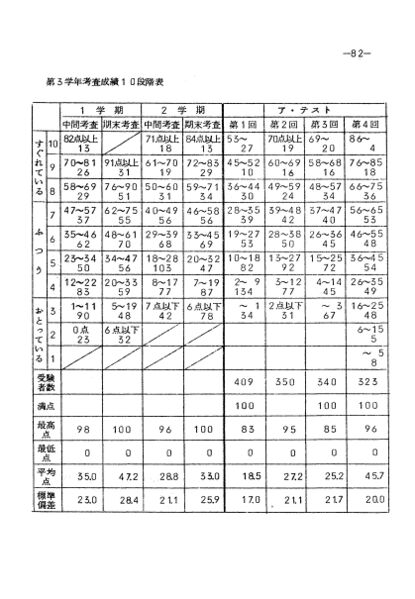 —82—
第3学年考査成績10段階表
1 学 期 2 学 期 ア・テスト
中間考査 期末考査 中間考査 期末考査 第1回 第2回 第3回 第4回
すぐれている
10 82点以上 71点以上 84点以上 53〜 70点以上 69〜 86〜
13 18 13 27 19 20 4
9 70〜81 91点以上 61〜70 72〜83 45〜52 60〜69 58〜68 76〜85
26 31 19 29 10 16 16 18
8 58〜69 76〜90 50〜60 59〜71 36〜44 49〜59 48〜57 66〜75
29 51 31 34 30 24 34 36
ふつう
7 47〜57 62〜75 40〜49 46〜58 28〜35 39〜48 37〜47 56〜65
37 55 56 56 39 42 40 53
6 35〜46 48〜61 29〜39 33〜45 19〜27 28〜38 26〜36 46〜55
62 70 68 69 53 50 45 48
5 23〜34 34〜47 18〜28 20〜32 10〜18 13〜27 15〜25 36〜45
50 56 103 47 82 92 72 54
4 12〜22 20〜33 8〜17 7〜19 2〜9 3〜12 4〜14 26〜35
83 59 77 87 134 77 45 49
おとっている
3 1〜11 5〜19 7点以下 6点以下 〜1 2点以下 〜3 16〜25
90 48 42 78 34 31 67 48
2 0点 6点以下 6〜15
23 32 5
1 〜5
8
受験者数 409 350 340 323
満点 100 100 100
最高点 98 100 96 100 83 95 85 96
最低点 0 0 0 0 0 0 0 0
平均点 35.0 47.2 28.8 33.0 18.5 27.2 25.2 45.7
標準偏差 23.0 28.4 21.1 25.9 17.0 21.1 21.7 20.0